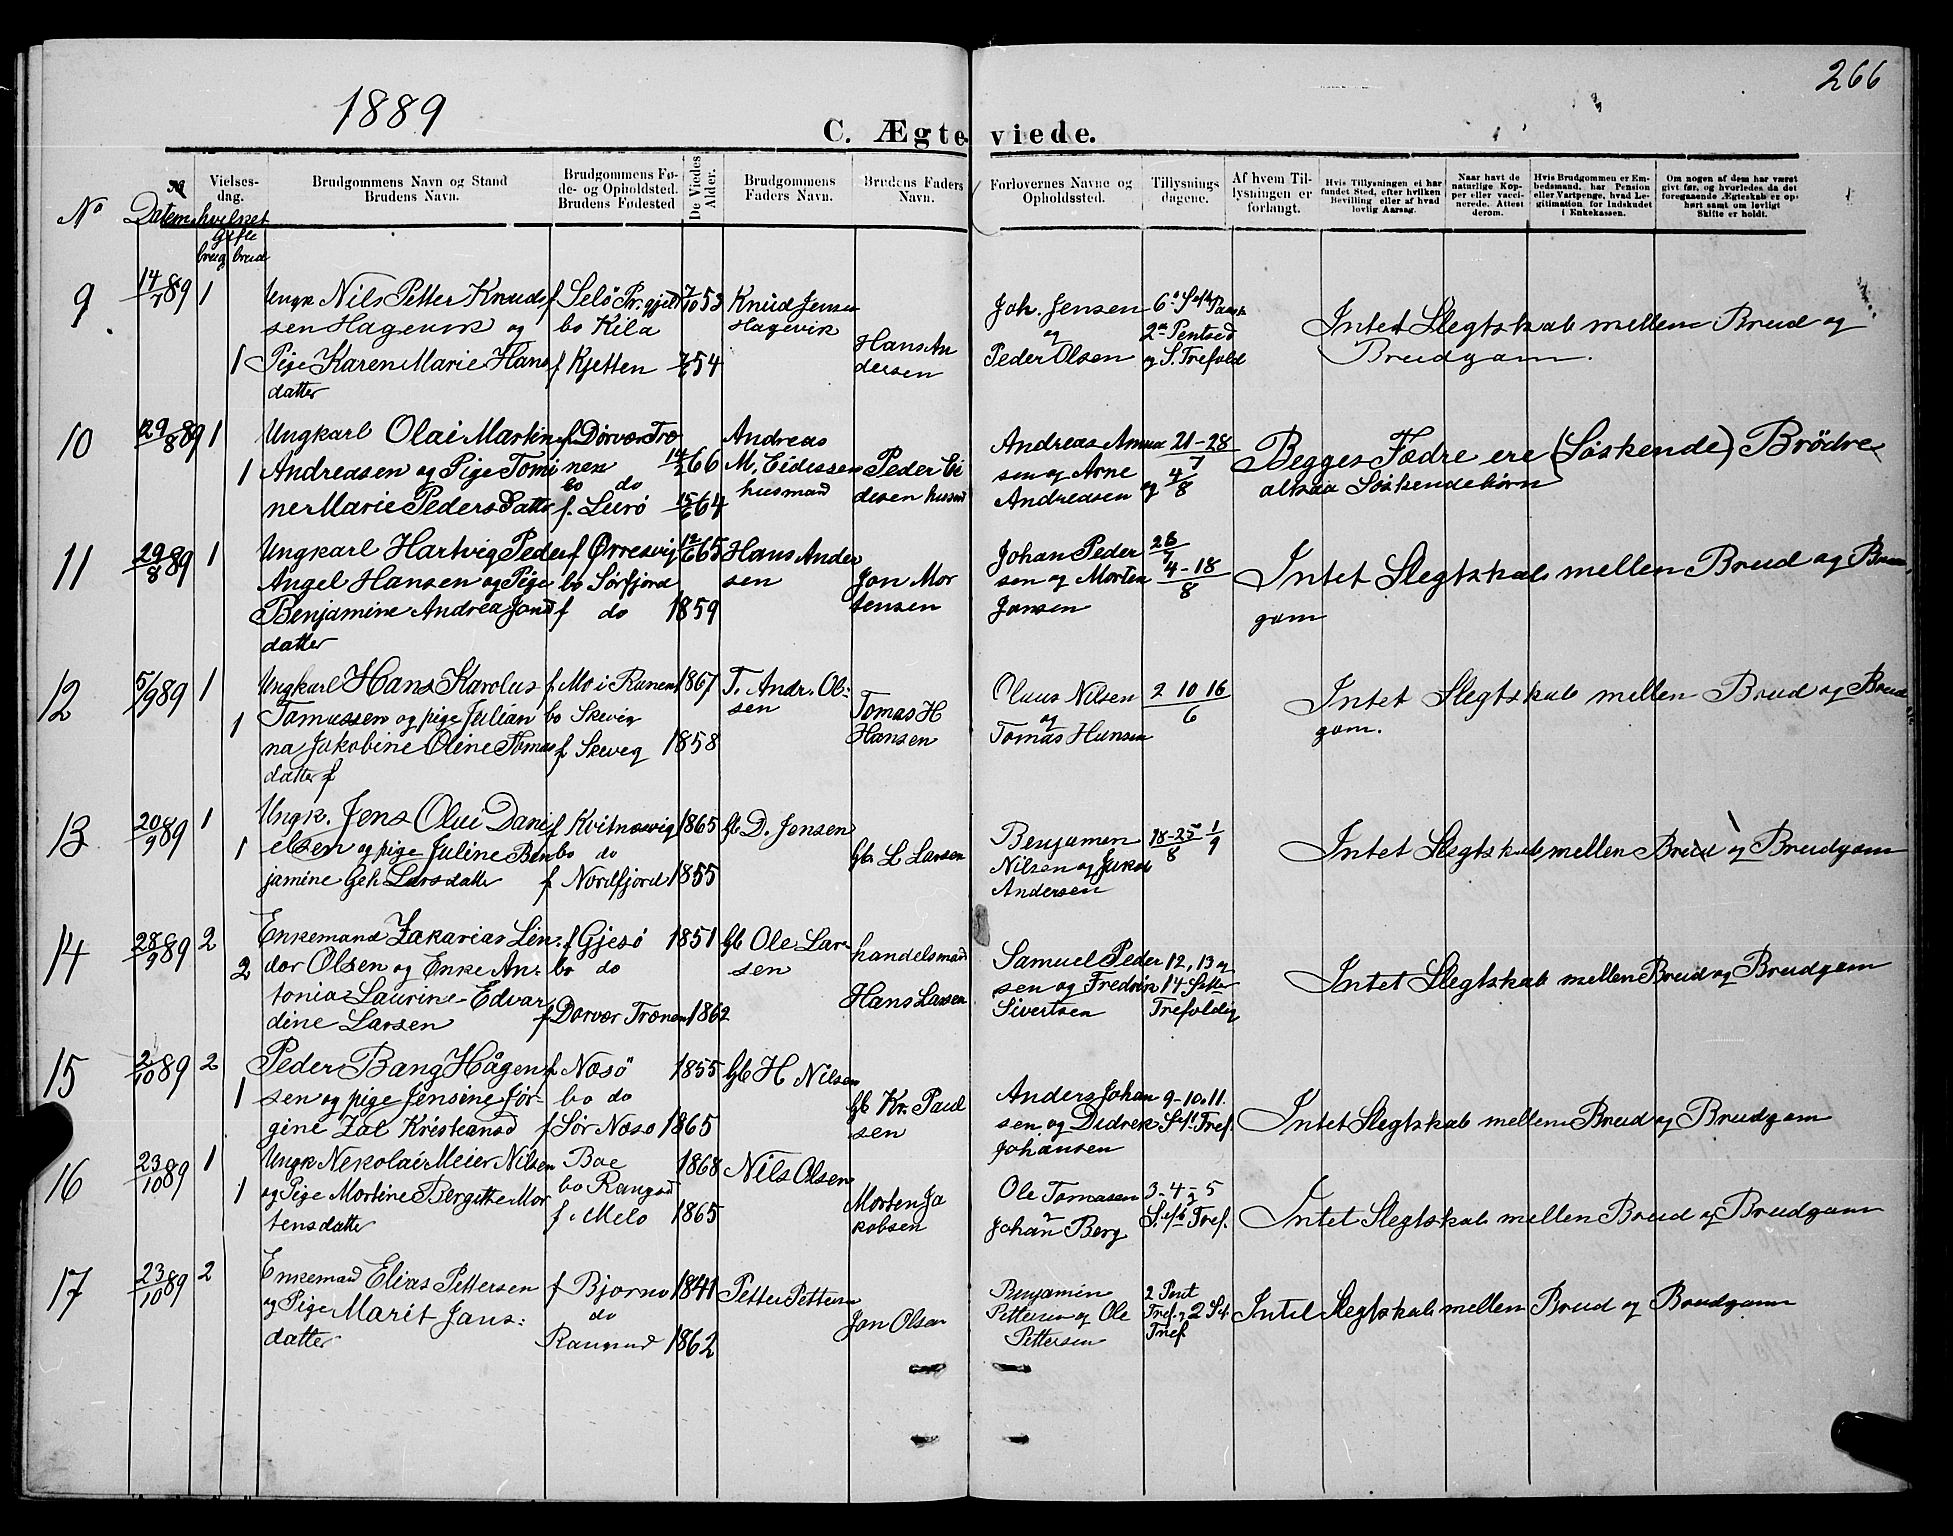 266
1889
C. Ægteviede.
No
Datem
Vielses-
dag.
hvilket
Gifte
brug brud
Brudgommens Navn og Stand
Brudens Navn.
Brudgommens Fø-
de- og Opholdsted.
Brudens Fødested
De Viedes
Alder.
Brudgommens
Faders Navn.
Brudens Faders
Navn.
Forlovernes Navne og
Opholdssted.
Tillysnings
dagene.
Af hvem Til-
lysningen er
forlangt.
Hvis Tillysningen ei har
fundet Sted, efter hvilken
Bevilling eller af hvad
lovlig Aarsag.
Naar havt de
naturlige Kop-
per eller vacci-
nerede. Attest
derom.
Hvis Brudgommen er Em-
bedsmand, har Pension
eller Vartpenge, hvad Le-
gitimation for Indskudet
i Enkekassen.
Om nogen af dem har været
givt før, og hvorledes da det
foregaaende Ægteskab er op-
hørt samt om lovligt
Skifte er holdt.
9
14/7 89
1
Ungk Nils Petter Knud
sen Hagevik og
1 Pige Karen Marie Hans
datter
f Selö Pr.gjeld
bo Kila
f Kjetten
7/10 53
7/6 54
Knud Jensen
Hagevik
Hans An
dersen
Joh. Jensen
og
Peder Olsen
6te S eft Paask
2en Pentsed
og S. Trefold
Intet Slegtskab mellem Brud og
Brudgom.
10
29/8 89
1
Ungkarl Olai Martin
1 Andreasen og Pige Tomi
ner Marie Pedersdatter
f. Dörvær Træ
nen
bo do
f. Lurö
14/2 66
15/6 64
Andreas
M. Eidissen
husmand
Peder Ei
disen husmd
Andreas Amun
sen og Arne
Andreasen
21-28/7
og 4/8
Begges Fædre ere (Söskende) Brödre
altsaa Söskendebörn
11
29/8 89
1
Ungkarl Hartvig Peder
Angel Hansen og Pige
Benjamine Andrea Jons
datter
f Ørresvig
bo Sörfjord
f do
12/6 65
1859
Hans Ander
sen
Jon Mor
tensen
Johan Peder
sen og Morten
Jonsen
28/7
4-18/8
Intet Slegtskab mellem Brud og Brud
gom
12
5/9 89
1
Ungkarl Hans Karolus
1 Tomassen og pige Julian
na Jakobine Oline Tomas
datter f
f Mo i Ranen
bo Skevig
f Skevig
1867
1858
T. Andr. Ol:
sen
Tomas H
Hansen
Olaus Nilsen
og
Tomas Hansen
2 10 16
6
Intet Slegtskab mellem Brud og Brud
gom.
13
20/9 89
1
Ungk. Jens Olai Dani
1 elsen og pige Juline Ben
jamine Geh Larsdatter
f Kvitnesvig
bo do
f Nordfjord
1865
1855
Gb D. Jensen
Gbr L Larsen
Benjamen
Nilsen og Jakob
Andersen
18-25/8 1/9
Intet Slegtskab mellem Brud og Brudgom
14
28/9 89
2
Enkemand Zakarias Lin:
2 dor Olsen og Enke An:
tonia Laurine Edvar
dine Larsen
f Gjesö
bo do
f Dorvær Trænen
1851
1862
Gb Ole Lar
sen
handelsmand
Hans Larsen
Samuel Peder
sen og Fredrik
Sivertsen
12, 13 og
14 Sefter
Trefoldig
Intet Slegtskab mellem Brud og Brudgom
15
2/10 89
2
Peder Bang Hågen
1 sen og pige Jensine Jör-
gine Zal Kristiansd
f Nesö
bo do
f Sör Nesö
1855
1865
Gb H Nilsen
Gb Kr. Paul
sen
Anders Johan
sen og Didrek
Johansen
9-10.11.
S eft. Tref.
Intet Slegtskab mellem Brud og Brudgom
16
23/10 89
1
Ungk Nekolai Meier Nilsen
1 og Pige Mortine Bergitte Mor
tensdatter
Boe
bo Rangsd
f. Melö
1868
1865
Nils Olsen
Morten Ja
kobsen
Ole Tomasen
og
Johan Berg
3-4 og 5
S. eft Tref.
Intet Slegtskab mellem Brud og Brudgom
17
23/10 89
2
Enkemand Elias Pettersen
og Pige Marit Jons:
datter
f Bjornö
do
Rangsud
1841
1862
Petter Pettersen
Jon Olsen
Benjamin
Pettersen og Ole
Pettersen
2 Pent
Tref. og 2 S. ef.
Tref
Intet Slegtskab mellem Brud og Brudgom